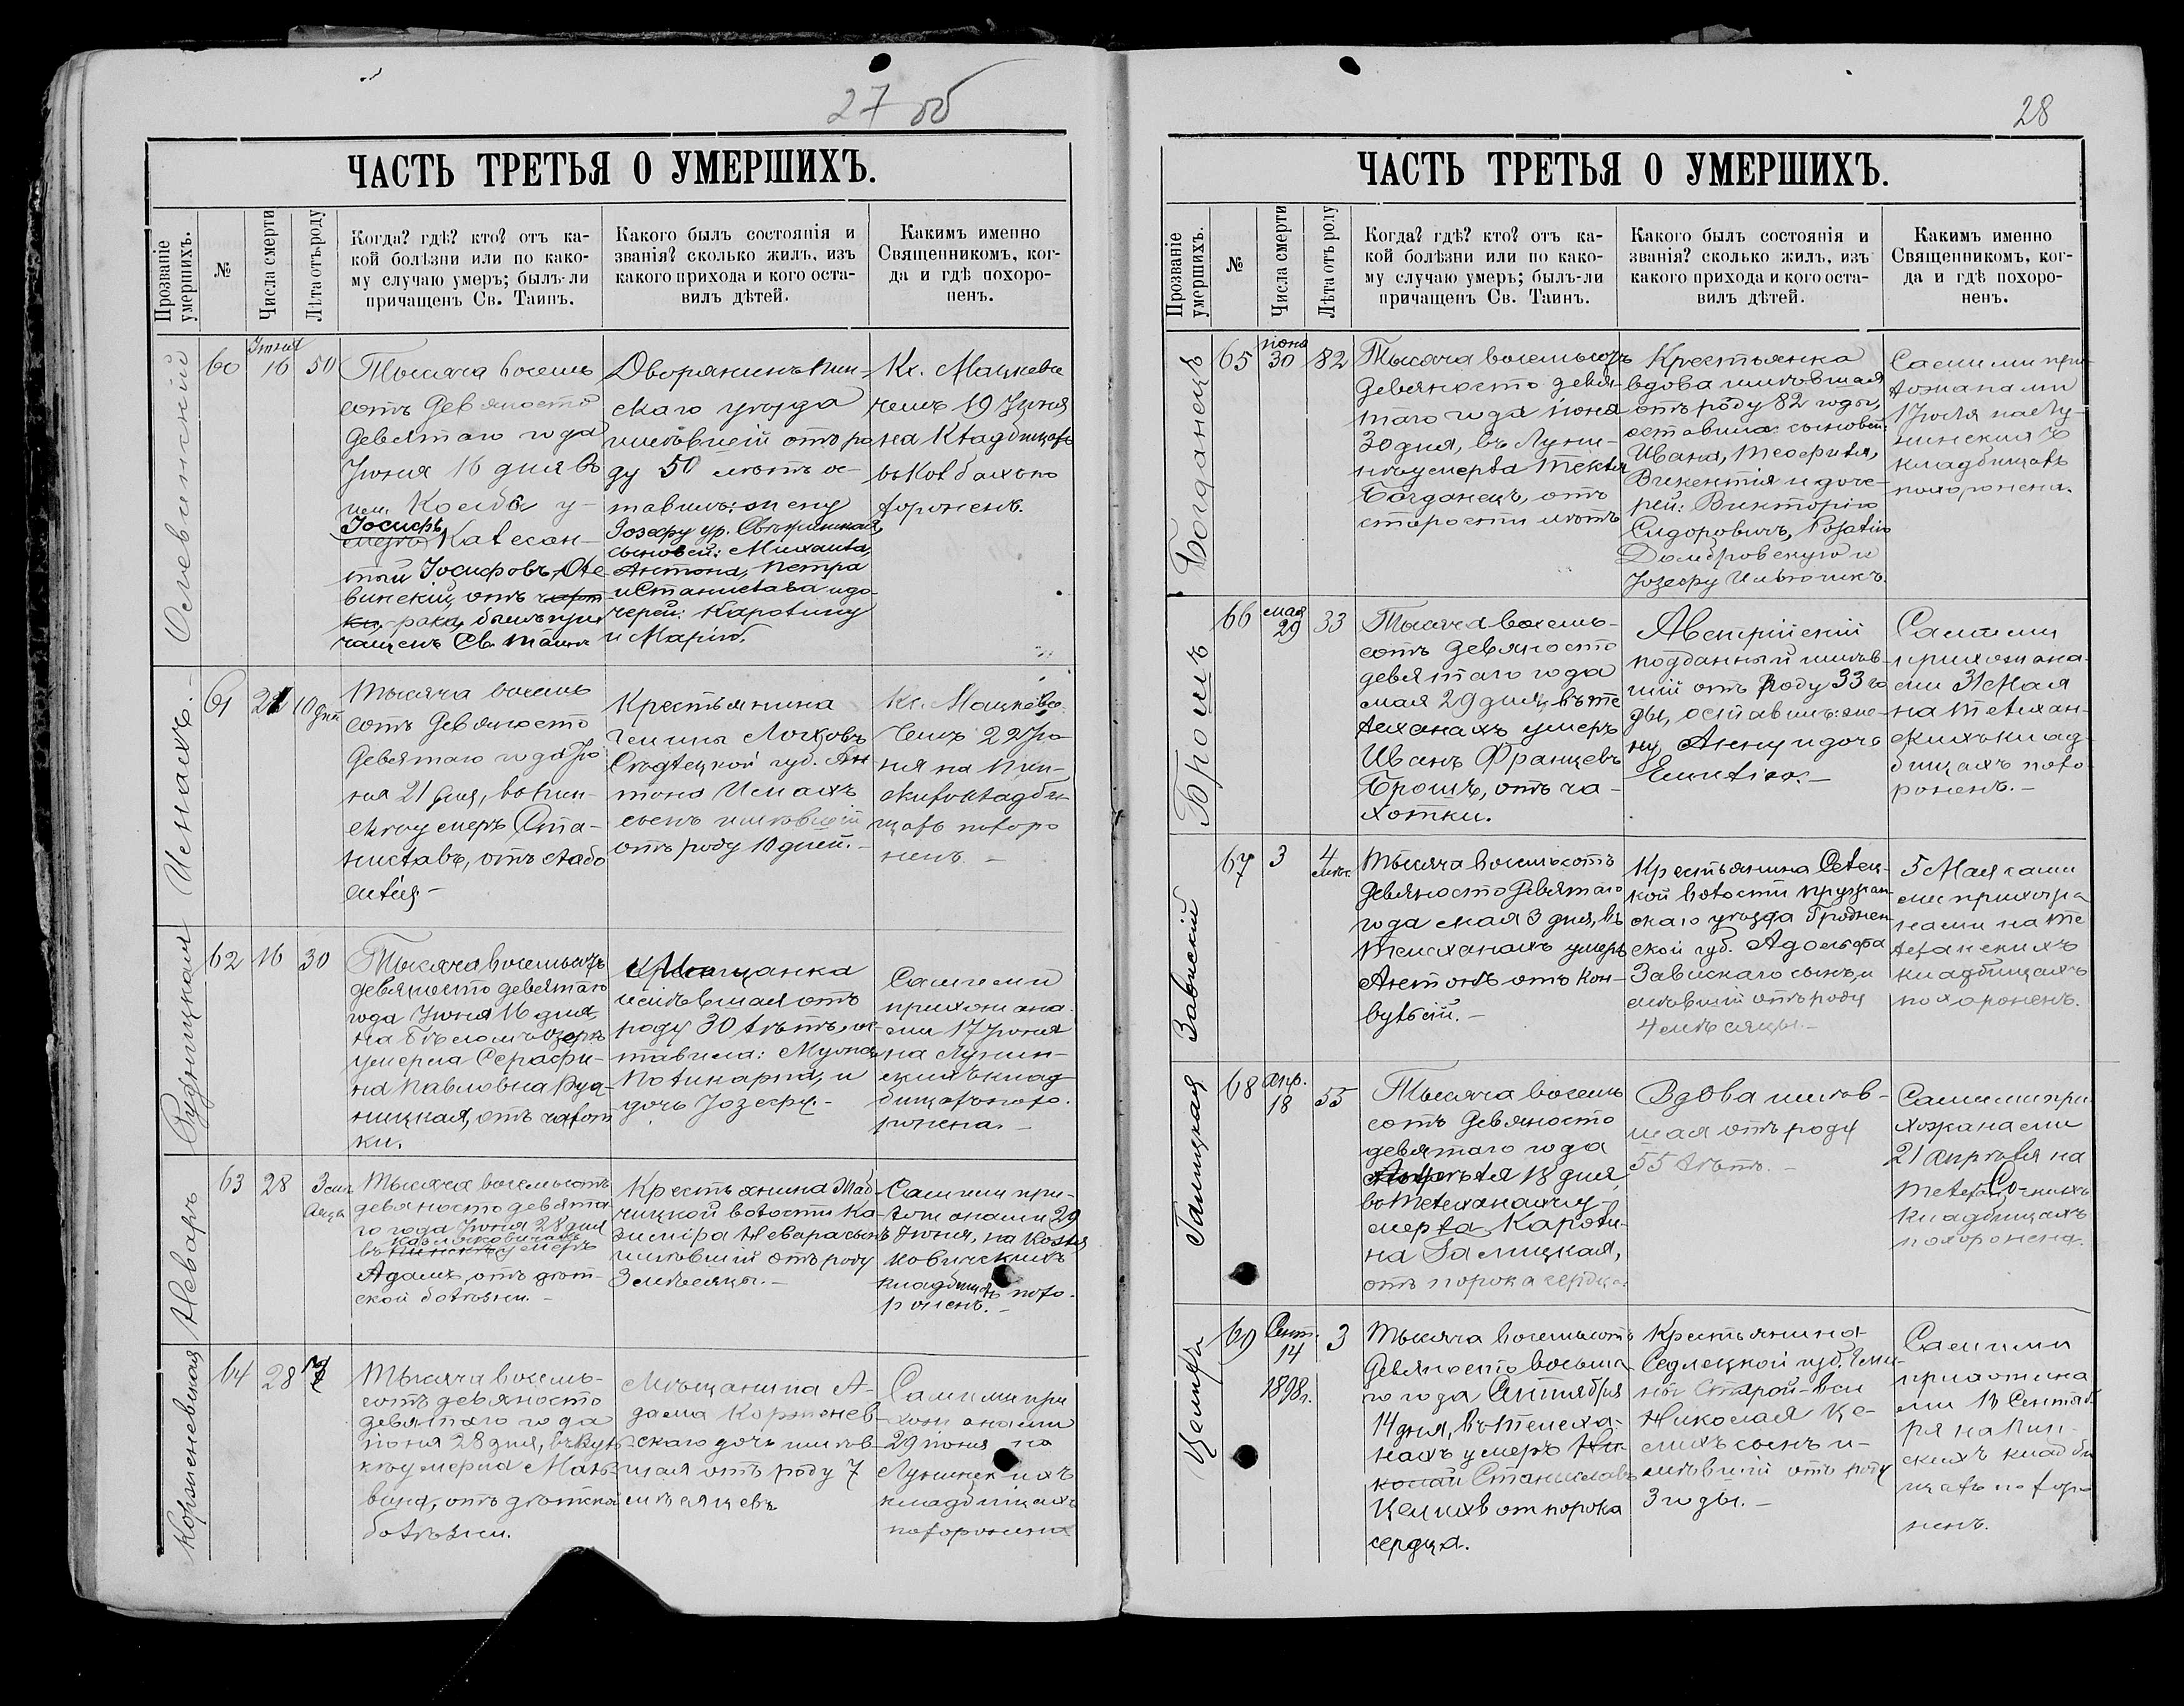 27 об
ЧАСТЬ ТРЕТЬЯ О УМЕРШИХЪ.
Прозваніе умершихъ.
№
Числа смерти
Лѣта отъ роду
Когда? гдѣ? кто? отъ ка-
кой болѣзни или по како-
му случаю умеръ; былъ-ли
причащенъ Св. Таинъ.
Какого былъ состоянія и
званія? сколько жилъ, изъ
какого прихода и кого оста-
вилъ дѣтей.
Какимъ именно
Священникомъ, ког-
да и гдѣ похоро-
ненъ.
60
Іюня
16
50
Тысяча восемь
сотъ девяносто
девятаго года
Іюня 16 дня въ
им. Колбы у-
Іосифъ
меръ Калесан-
тый Іосифовъ Оле
винскій, отъ чахот
ки рака, былъ при
чащенъ Св. Таинъ
Дворянинъ Пин-
скаго уѣзда
имѣвшій отъ ро
ду 50 лѣтъ ос-
тавилъ: жену
Іозефу ур.
сыновей: Михаила,
Антона, Петра
и Станислава и до-
черей: Каролину
и Марію.
Кс. Мацкеви
чемъ 19 Іюня
на кладбищахъ
въ Колбахъ по
хороненъ.
Исмахъ.
61
21
10 дни
Тысяча восемь
сотъ девяносто
девятаго года Ію
ня 21 дня, въ Пин-
скѣ умеръ Ста-
ниславъ, отъ слабо
силія.
Крестьянина
Гмины
Сѣдлецкой губ. Ан
тона Исмахъ
сынъ имѣвшій
отъ роду 10 дней. -
Кс. Мацкеви
чемъ 22 Ію
ня на Пин-
скихъ кладби-
щахъ похоро
ненъ. -
Рудницкая
62
16
30
Тысяча восемьсотъ
девяносто девятаго
года Іюня 16 дня,
на Бѣломъ Озерѣ
умерла Серафи-
на Павловна Руд-
ницкая, отъ чахот
ки.
Мѣщанка
имѣвшая отъ
роду 30 лѣтъ, ос-
тавила: мужа
Поликарпа, и
дочь Іозефу. -
Самими
прихожана-
ми 17 Іюня
на Лунин-
скихъ клад-
бищахъ похо-
ронена. -
Неваръ
63
28
3 мѣ
сяца
Тысяча восемьсотъ
девяносто девята
го года Іюня 28 дня
Козляковичахъ
въ Пинскѣ умеръ
Адамъ, отъ дѣт-
ской болѣзни. -
Крестьянина Жаб
чицкой волости Ка
зиміра Невара сынъ
имѣвшій отъ роду
3 мѣсяца. -
Самими при-
хожанами 29
Іюня, на Козля
ковическихъ
кладбищахъ похо-
роненъ. -
Корженевская
64
28
Тысяча восемь-
сотъ девяносто
девятаго года
іюня 28 дня, въ
умерла Маль-
вина, отъ дѣтской
болѣзни.
Мѣщанина А-
дама Корженев-
скаго дочь имѣв-
шая отъ роду 7
мѣсяцевъ
Самими при
хожанами
29 іюня на
Лунинскихъ
кладбищахъ
похоронена
28
ЧАСТЬ ТРЕТЬЯ О УМЕРШИХЪ.
Прозваніе умершихъ.
№
Числа смерти
Лѣта отъ роду
Когда? гдѣ? кто? отъ ка-
кой болѣзни или по како-
му случаю умеръ; былъ-ли
причащенъ Св. Таинъ.
Какого былъ состоянія и
званія? сколько жилъ, изъ
какого прихода и кого оста-
вилъ дѣтей.
Какимъ именно
Священникомъ, ког-
да и гдѣ похоро-
ненъ.
Богданецъ
65
іюня
30
82
Тысяча восемьсотъ
девяносто девя-
таго года іюня
30 дня, въ Луни-
нѣ умерла Текля
Богданецъ, отъ
старости лѣтъ
Крестьянка
вдова имѣвшая
отъ роду 82 года,
оставила сыновей:
Ивана, Теофиля,
Викентія и доче-
рей: Викторію
Сидоровичъ, Розалію
Домбровскую и
Іозефу
Самими при-
хожанами
1 Іюля на Лу-
нинскихъ
кладбищахъ
похоронена.
Брошъ
66
мая
29
33
Тысяча восемь-
сотъ девяносто
девятаго года
мая 29 дня, въ Те
леханахъ умеръ
Иванъ Францевъ
Брошъ, отъ ча-
хотки.
Австрійскій
подданный имѣв-
шій отъ роду 33 го
ды, оставилъ: же-
ну Анну и дочь
Емилію. -
Самими
прихожана-
ми 31 Мая
на Телехан-
скихъ клад-
бищахъ похо-
роненъ. -
Завискій
67
3
4
мѣс.
Тысяча восемьсотъ
девяносто девятаго
года мая 3 дня, въ
Телеханахъ умеръ
Антонъ отъ кон-
вульсій. -
Крестьянина Селец-
кой волости Пружан-
скаго уѣзда Гроднен-
ской губ. Адольфа
Завискаго сынъ, и
мѣвшій отъ роду
4 мѣсяцы. -
5 Мая сами
ми прихожа
нами на Те
леханскихъ
кладбищахъ
похороненъ.
Галицкая
68
Апр.
18
55
Тысяча восемь
сотъ девяносто
девятаго года
Апрѣля 18 дня
въ Телеханахъ у-
мерла Кароли-
на Галицкая,
отъ порока сердца
Вдова имѣв-
шая отъ роду
55 лѣтъ. -
Самими при
хожанами
21 апрѣля на
Телеханскихъ
кладбищахъ
похоронена.
69
Сент.
14
1898 г.
3
Тысяча восемьсотъ
девяносто восьма
го года Сентября
14 дня, въ Телеха-
нахъ умеръ Ни-
колай Станиславъ
Цемихъ от порока
сердца.
Крестьянина
Седлецкой губ. Гми-
ны Старой-Вси
Николая Це-
михъ сынъ и-
мѣвшій отъ роду
3 годы. -
Самими
прихожана
ми Сентяб
ря на Пин-
скихъ кладби
щахъ похоро
ненъ.